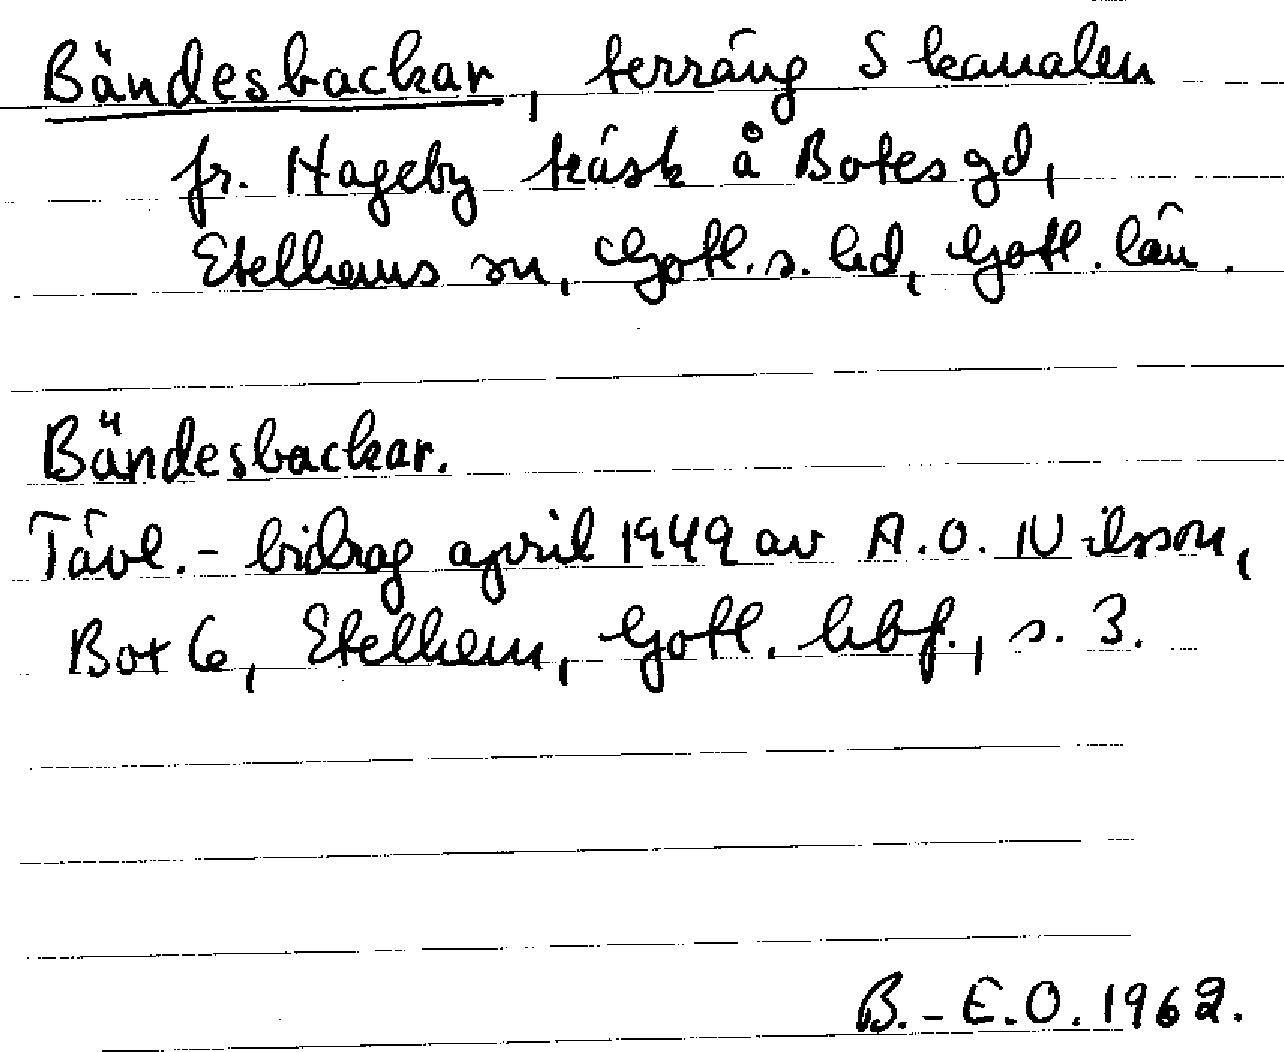 Bändesbackar, terräng S kanalen
fr. Hageby träsk å Botes gd,
Etelhems sn, Gotl. s. hd, Gotl. län.
Bändesbackar.
Tävl.- bidrag april 1949 av A.O. Nilsson,
Box 6, Etelhem, Gotl. hbf., s. 3.
B.-E.O. 1962.